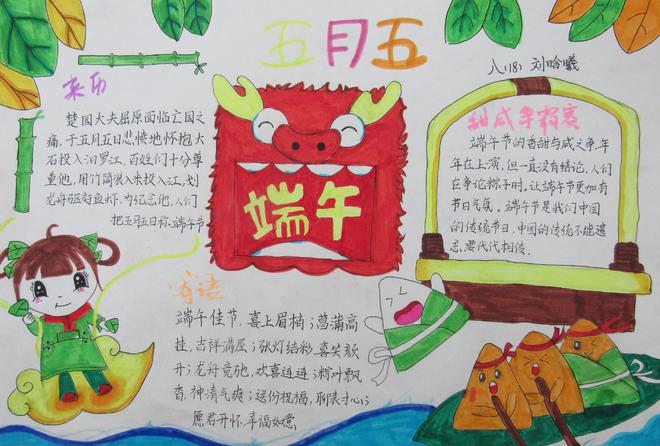 五月五
八(18) 刘晗曦
来历
楚国大夫屈原面临亡国之
痛,于五月五日悲愤地怀抱大
石投入汨罗江,百姓们十分尊
重他,用竹筒装米投入江,划
龙舟驱赶鱼虾,为纪念他,人们
把五月五日称端午节
端午
甜咸争霸赛
端午节的香甜与咸之争,年
年在上演,但一直没有结论,人们
在争论粽子时,让端午节更加有
节日气氛。端午节是我们中国
的传统节日,中国的传统不能遗
忘,要代代相传。
寄语
端午佳节,喜上眉梢;菖蒲高
挂,吉祥满屋;张灯结彩,喜笑颜
开;龙舟竞驰,欢喜连连;粽叶飘
香,神清气爽;送份祝福,聊表寸心;
愿君开怀,幸福如意